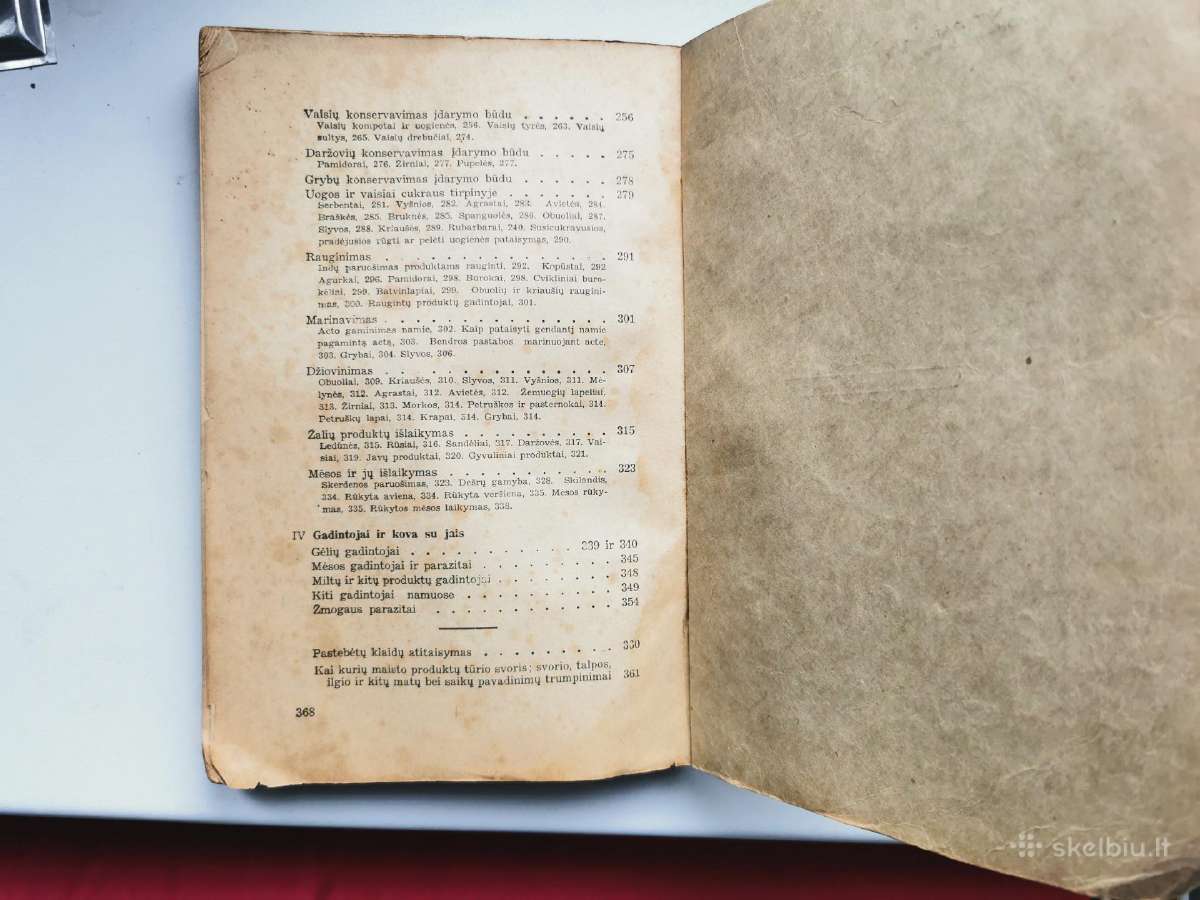 Vaisių konservavimas įdarymo būdu . . . . . . 256
Vaisių kompotai ir uogienės, 256. Vaisių tyrės, 263. Vaisių
sultys, 265. Vaisių drebučiai, 274.
Daržovių konservavimas įdarymo būdu . . . . . 275
Pamidorai, 276. Žirniai, 277. Pupelės, 277.
Grybų konservavimas įdarymo būdu . . . . . . 278
Uogos ir vaisiai cukraus tirpinyje . . . . . . . 279
Serbentai, 281. Vyšnios, 282. Agrastai, 283. Avietės, 284.
Braškės, 285. Bruknės, 285. Spanguolės, 286. Obuoliai, 287.
Slyvos, 288. Kriaušės, 289. Rubarbarai, 249. Susicukravusios,
pradėjusios rūgti ar pelėti uogienės pataisymas, 290.
Rauginimas . . . . . . . . . . . . . 291
Indų paruošimas produktams rauginti, 292. Kopūstai, 292
Agurkai, 296. Pamidorai, 298. Burokai, 298. Cvikliniai buro-
kėliai, 299. Batvinlapiai, 299. Obuolių ir kriaušių raugini-
mas, 300. Raugintų produktų gadintojai, 301.
Marinavimas . . . . . . . . . . . . . 301
Acto gaminimas namie, 302. Kaip pataisyti gendantį namie
pagamintą actą, 303. Bendros pastabos marinuojant acte,
303. Grybai, 304. Slyvos, 306.
Džiovinimas . . . . . . . . . . . . . 307
Obuoliai, 309. Kriaušės, 310. Slyvos, 311. Vyšnios, 311. Mė-
lynės, 312. Agrastai, 312. Avietės, 312. Žemuogių lapeliai,
313. Žirniai, 313. Morkos, 314. Petruškos ir pasternokai, 314.
Petruškų lapai, 314. Krapai, 314. Grybai, 314.
Žalių produktų išlaikymas . . . . . . . . . . 315
Ledūnės, 315. Rūsiai, 316. Sandėliai, 317. Daržovės, 317. Vai-
siai, 319. Javų produktai, 320. Gyvuliniai produktai, 321.
Mėsos ir jų išlaikymas . . . . . . . . . . . 323
Skerdenos paruošimas, 323. Dešrų gamyba, 328. Skilandis,
334. Rūkyta aviena, 334. Rūkyta veršiena, 335. Mėsos rūky-
mas, 335. Rūkytos mėsos laikymas, 338.
IV Gadintojai ir kova su jais
Gėlių gadintojai . . . . . . . . . . . 339 ir 340
Mėsos gadintojai ir parazitai . . . . . . . . . 345
Miltų ir kitų produktų gadintojai . . . . . . . . 348
Kiti gadintojai namuose . . . . . . . . . . 349
Žmogaus parazitai . . . . . . . . . . . 354
Pastebėtų klaidų atitaisymas . . . . . . . . .
Kai kurių maisto produktų tūrio svoris; svorio, talpos,
ilgio ir kitų matų bei saikų pavadinimų trumpinimai 361
368
skelbiu.lt